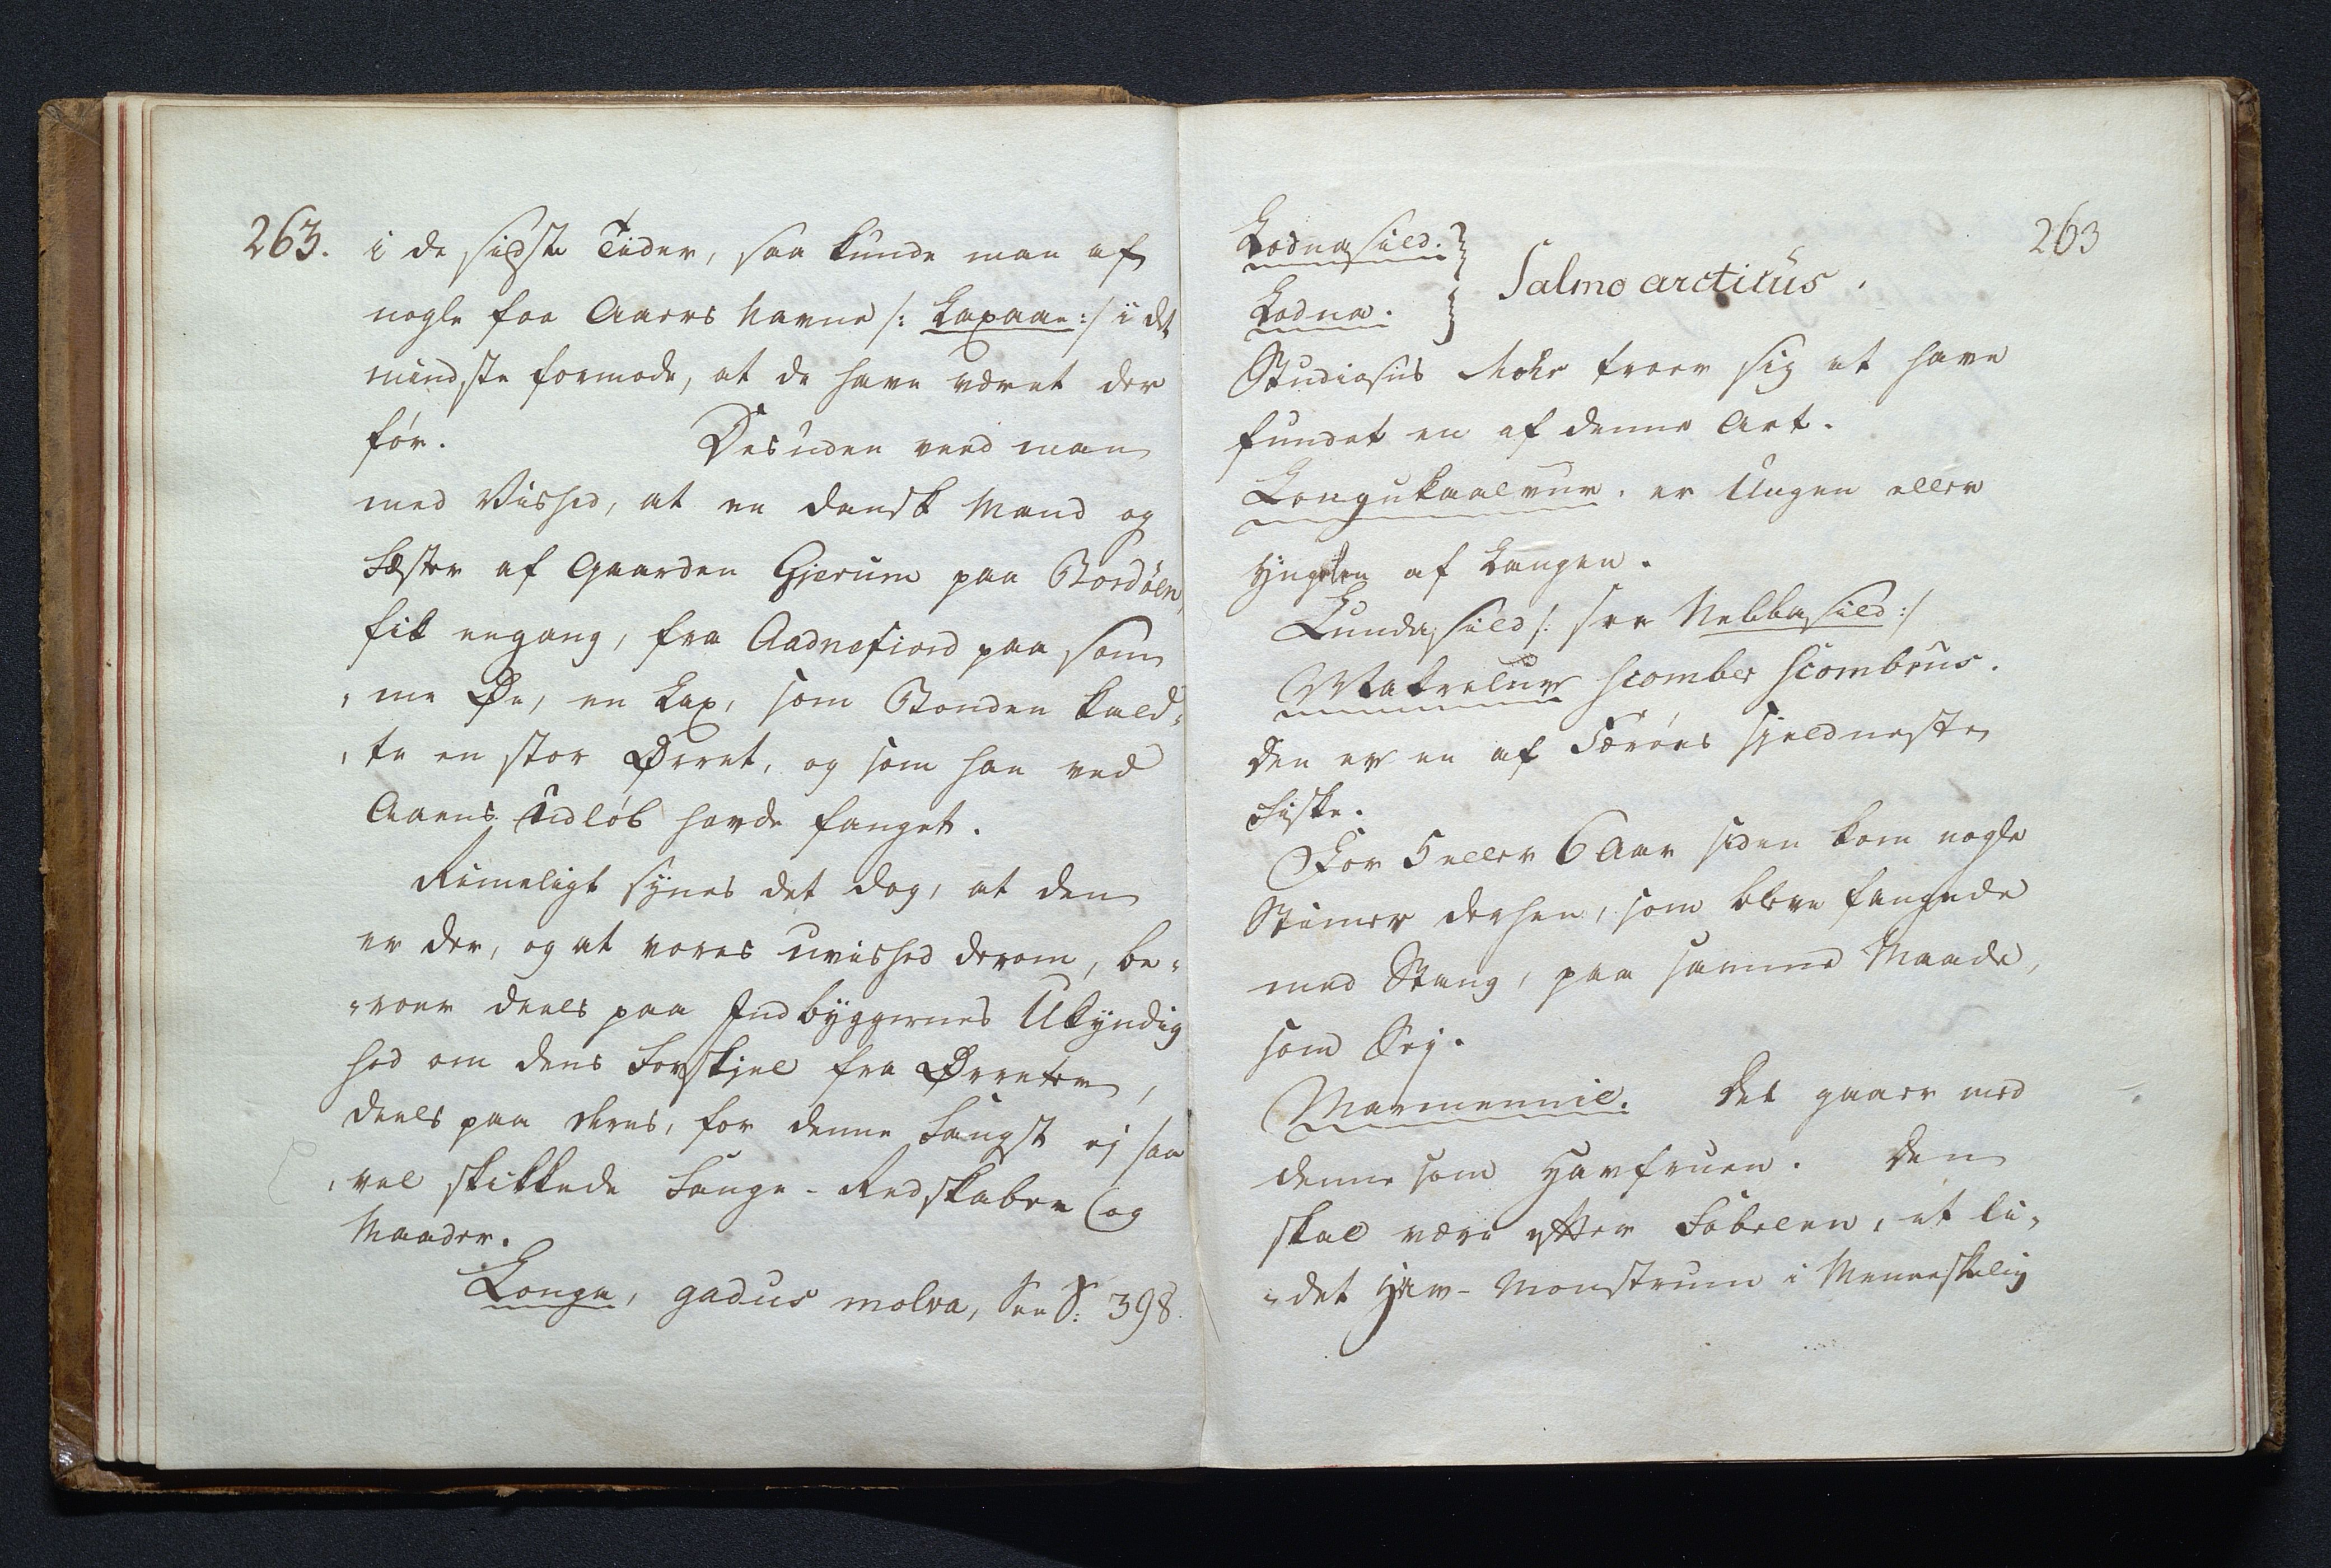 263.
i de sidste Tider, saa kunde man af
nogle faa Aaers Navne /: Laxaae :/ i det
mindste formode, at de have været der
før. Desuden veed man
med Vished, at en dansk Mand og
Fæster af Gaarden Gjerum paa Bordöen,
fik engang, fra Aadnefiord paa sam
„me Øe, en Lax, som Bonden kald„
„te en stor Ørret, og som han ved
Aaens Udløb havde fanget.
Rimeligt synes det dog, at den
er der, og at vores uvished derom, be„
„roer deels paa Indbyggernes Ukyndig
hed om dens Forskjel fra Ørreten,
deels paa deres, for denne Fangst ej saa
„vel skikkede Fange-Redskaber og
Maader.
Longa, gadus molva, See S: 398.
263
Lodnasild.
Lodna. } Salmo arcticus.
Studiosus Mohr troer sig at have
fundet en af denne Art.
Longukaalvur. er Ungen eller
Yngelen af Langen.
Lundasild /: see Nebbasild :/
Makrelur scomber scombrus.
Den er en af Færöes sjeldneste
Fiske.
For 5 eller 6 Aar siden kom nogle
Stimer derhen, som bleve fangede
med Stang, paa samme Maade,
som Sej.
Marmennil. Det gaaer med
denne som Havfruen. Den
skal være efter Fabelen, et li„
„det Hav-Monstrum i Menneskelig